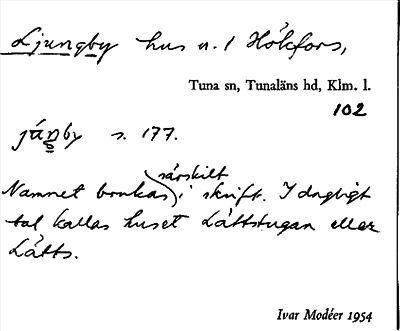 Ljungby hus u. l Hökfors,
Tuna sn, Tunaläns hd, Klm. l.
102
júŋby s. 177.
särskilt
Namnet brukas i skrift. I dagligt
tal kallas huset Låttstugan eller
Låtts.
Ivar Modéer 1954